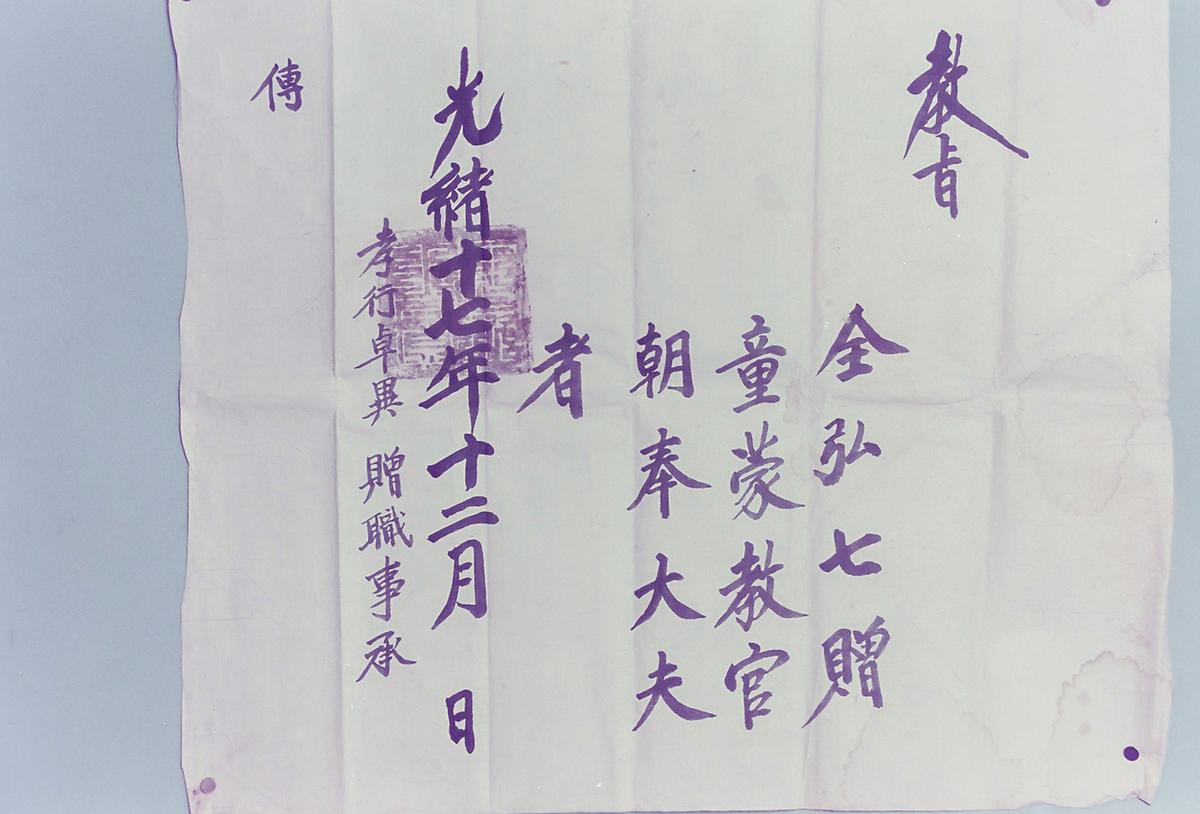 教旨
全弘七贈
童蒙教官
朝奉大夫
者
光緒十七年十二月 日
孝行卓異 贈職事承
傳